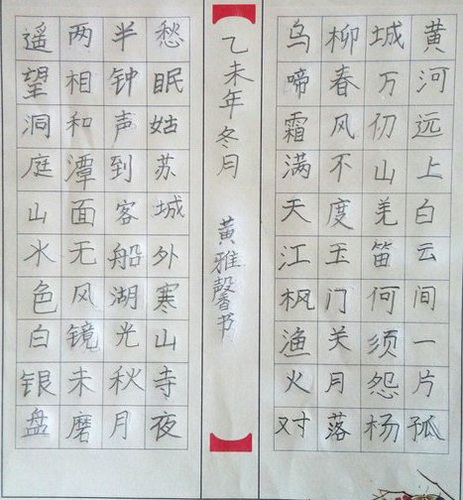 黄河远上白云间一片孤
城万仞山羌笛何须怨杨
柳春风不度玉门关月落
乌啼霜满天江枫渔火对
愁眠姑苏城外寒山寺夜
半钟声到客船湖光秋月
两相和潭面无风镜未磨
遥望洞庭山水色白银盘
乙未年冬月 黄雅馨书